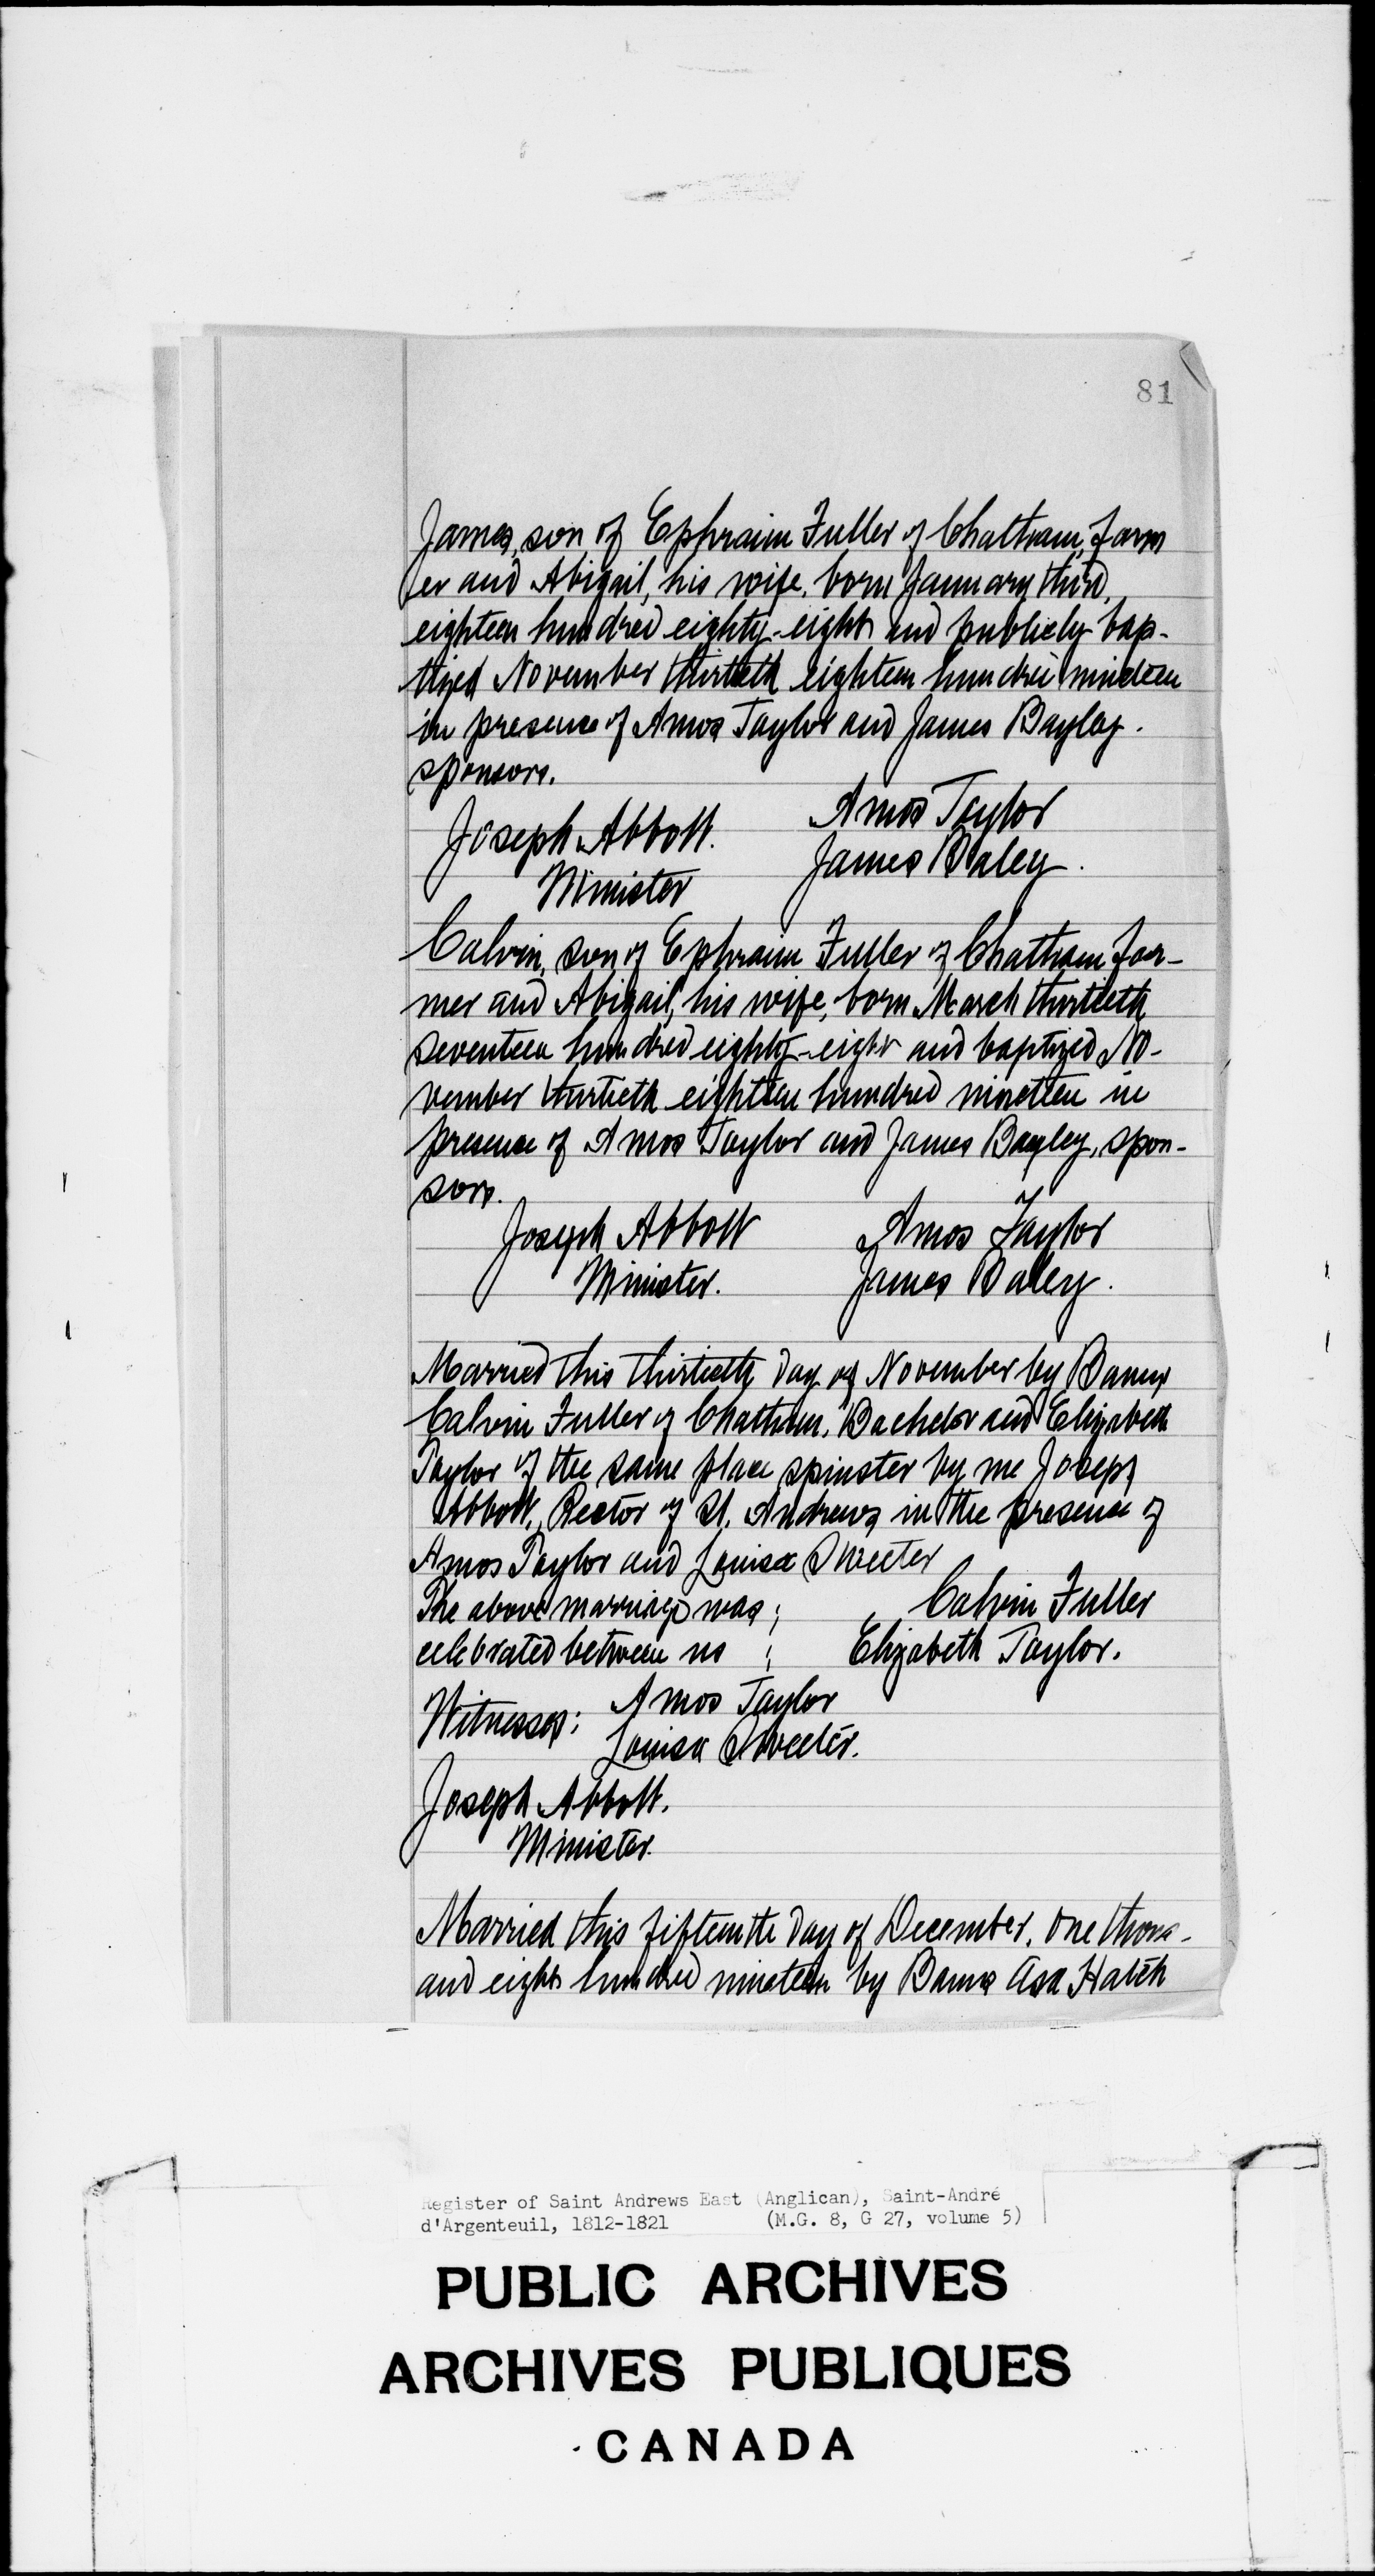 81
James, son of Ephraim Fuller of Chatham, farm
er and Abigail, his wife, born January third,
eighteen hundred eighty-eight and publicly bap-
tized November thirtieth eighteen hundred nineteen
in presence of Amos Taylor and James Bayley.
sponsors.
Joseph Abbott. Amos Taylor
Minister James Baley.
Calvin, son of Ephraim Fuller of Chatham Far-
mer and Abigail, his wife, born March thirtieth
seventeen hundred eighty-eight and baptized No-
vember thirtieth eighteen hundred nineteen in
presence of Amos Taylor and James Bayley, spon-
sors.
Joseph Abbott Amos Taylor
Minister. James Baley.
Married this thirtieth day of November by Banns
Calvin Fuller of Chatham, Bachelor and Elizabeth
Taylor of the same place spinster by me Joseph
Abbott, Rector of St. Andrews in the presence of
Amos Taylor and Louisa Sweeter
The above marriage was ; Calvin Fuller
celebrated between us ; Elizabeth Taylor.
Witnesses: Amos Taylor
Louisa Sweeter.
Joseph Abbott.
Minister.
Married this fifteenth day of December, one thous-
and eight hundred nineteen by Banns Asa Hatch
Register of Saint Andrews East (Anglican), Saint-André
d'Argenteuil, 1812-1821 (M.G. 8, G 27, volume 5)
PUBLIC ARCHIVES
ARCHIVES PUBLIQUES
CANADA